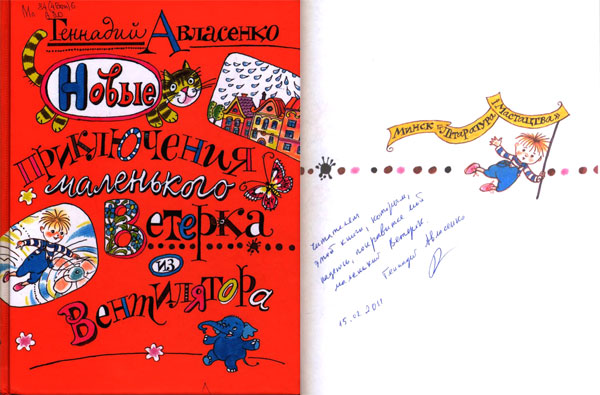 Геннадий Авласенко
Новые
приключения
маленького
Ветерка
из
Вентилятора
Минск «Літаратура і Мастацтва»
читателям
этой книги, которым,
надеюсь, понравится мой
маленький Ветерок.
Геннадий Авласенко
15.02.2011